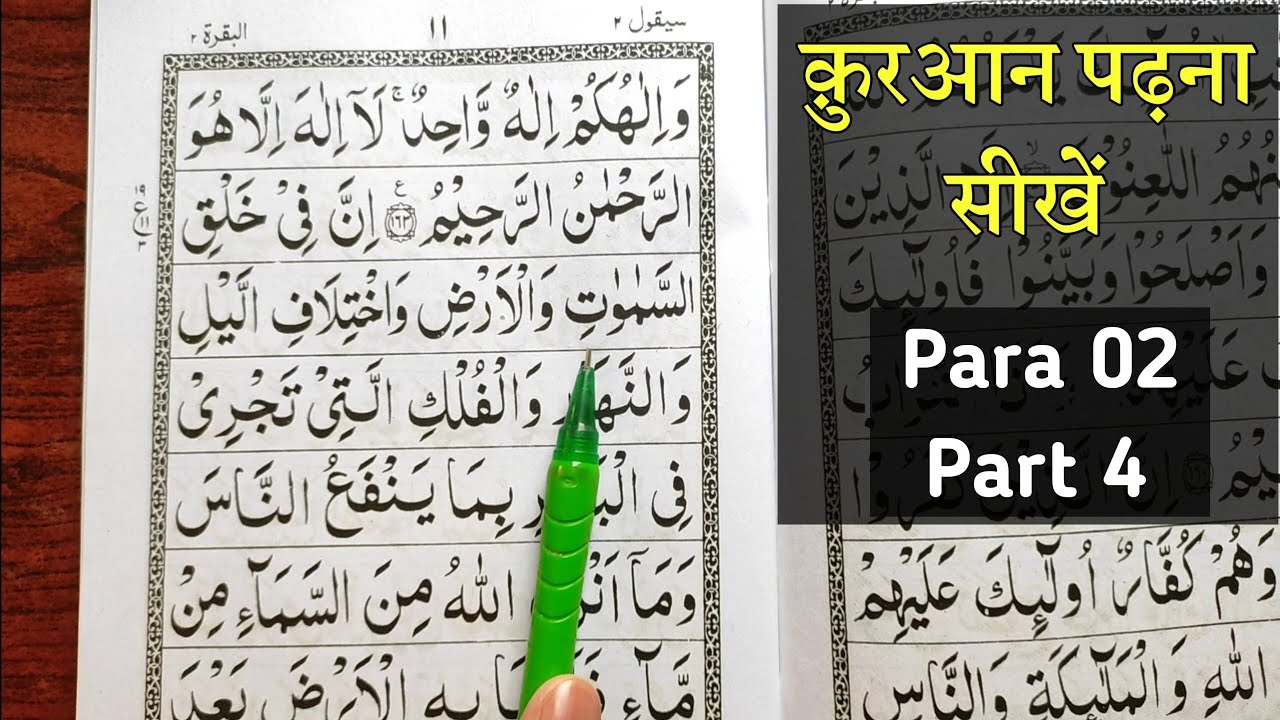 سيقول ٢
١١
البقرة ٢
وَاِلٰهُكُمْ اِلٰهٌ وَّاحِدٌ ۚ لَآ اِلٰهَ اِلَّا هُوَ
الرَّحْمٰنُ الرَّحِيْمُ ﴿١٦٣﴾ ع اِنَّ فِيْ خَلْقِ
السَّمٰوٰتِ وَالْاَرْضِ وَاخْتِلَافِ الَّيْلِ
وَالنَّهَارِ وَالْفُلْكِ الَّتِيْ تَجْرِيْ
فِي بِمَا يَنْفَعُ النَّاسَ
وَمَآ اللّٰهُ مِنَ السَّمَآءِ مِنْ
مَّآءٍ بِهِ الْاَرْضَ بَعْدَ
١٩
ع ١١
٣
क़ुरआन पढ़ना
सीखें
Para 02
Part 4
الَّذِيْنَ
وَاَصْلَحُوْا وَبَيَّنُوْا فَاُولٰٓئِكَ
وَهُمْ كُفَّارٌ اُولٰٓئِكَ عَلَيْهِمْ
اللّٰهِ وَالْمَلٰٓئِكَةِ وَالنَّاسِ